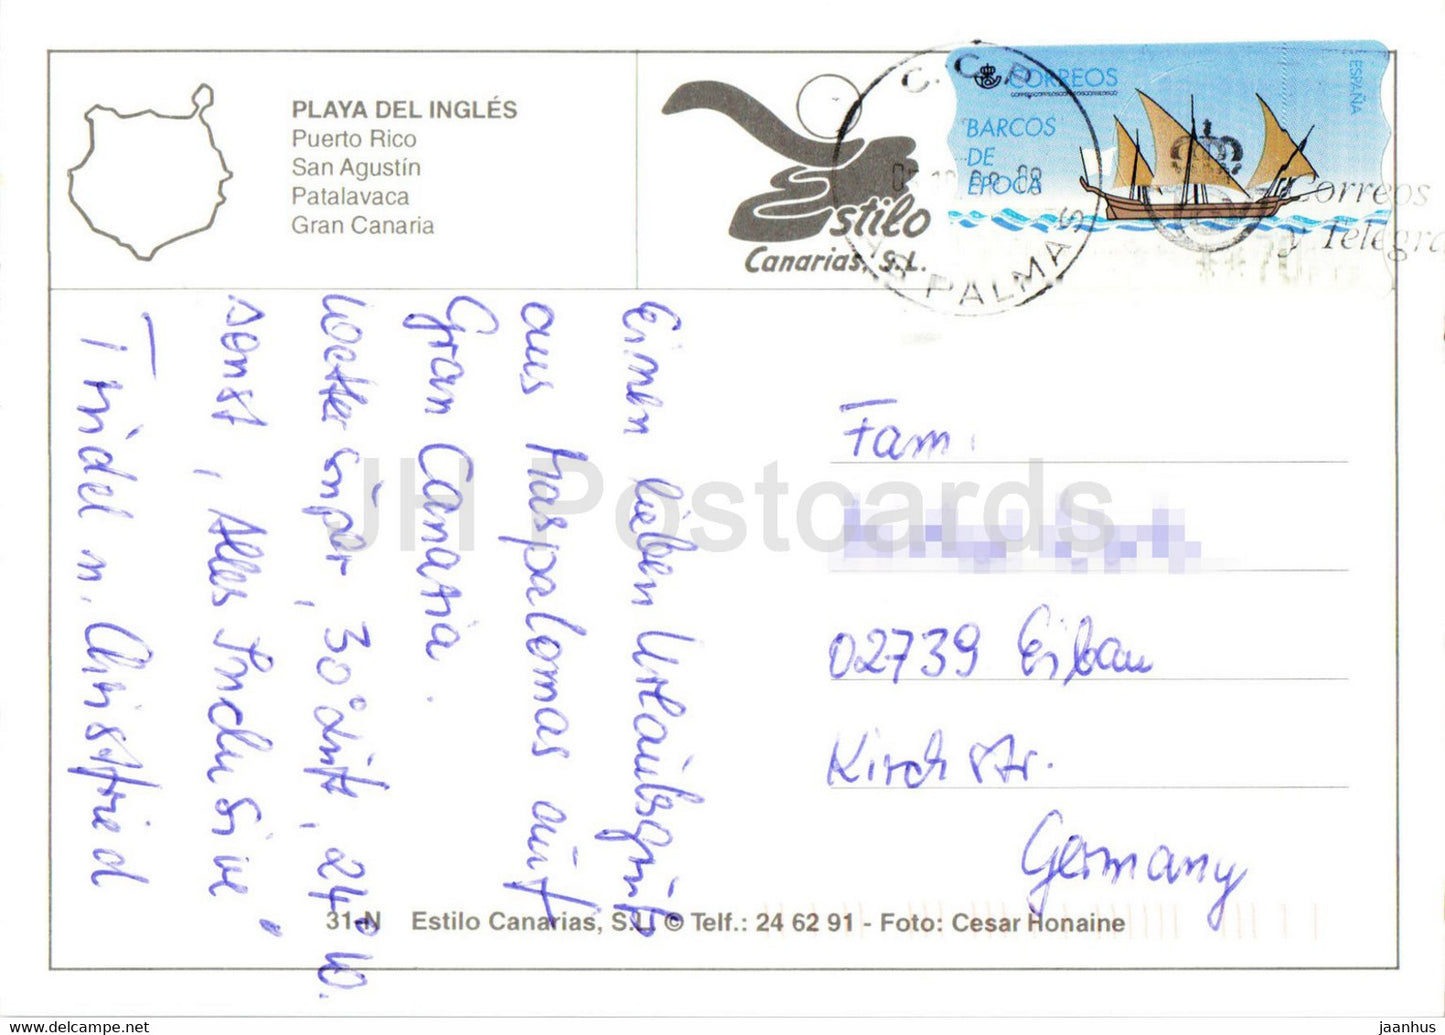 PLAYA DEL INGLÉS
Puerto Rico
San Agustín
Patalavaca
Gran Canaria
Estilo
Canarias, S.L.
CORREOS
ESPAÑA
BARCOS
DE
EPOCA
PALMAS
Correos
y Telegra
Einen lieben Urlaubsgruß
aus Maspalomas auf
Gran Canaria.
Wetter super, 30° dr
sonst, "Alles Inclusive"
Christfried
Fam.
02739 Eibau
Kirchstr.
Germany
31-N Estilo Canarias, S.L. © Telf.: 24 62 91 - Foto: Cesar Honaine
JH Postcards
https://www.delcampe.net
jaanhus